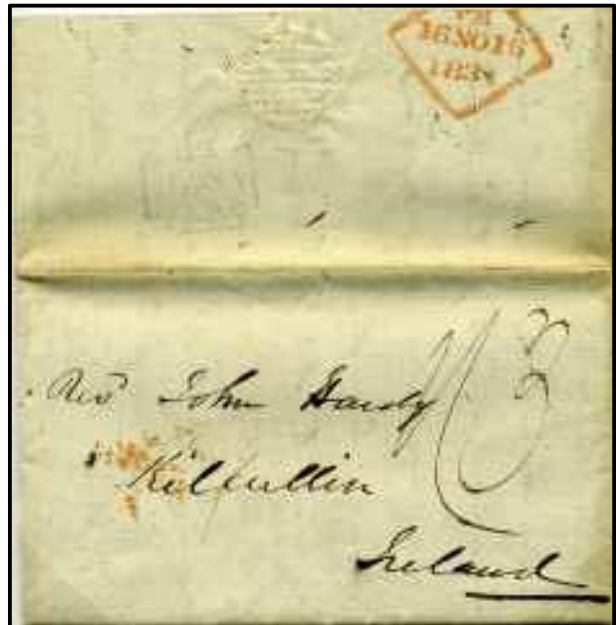 16 NO 16
183
Revd John Handy
Kilcullin
Ireland